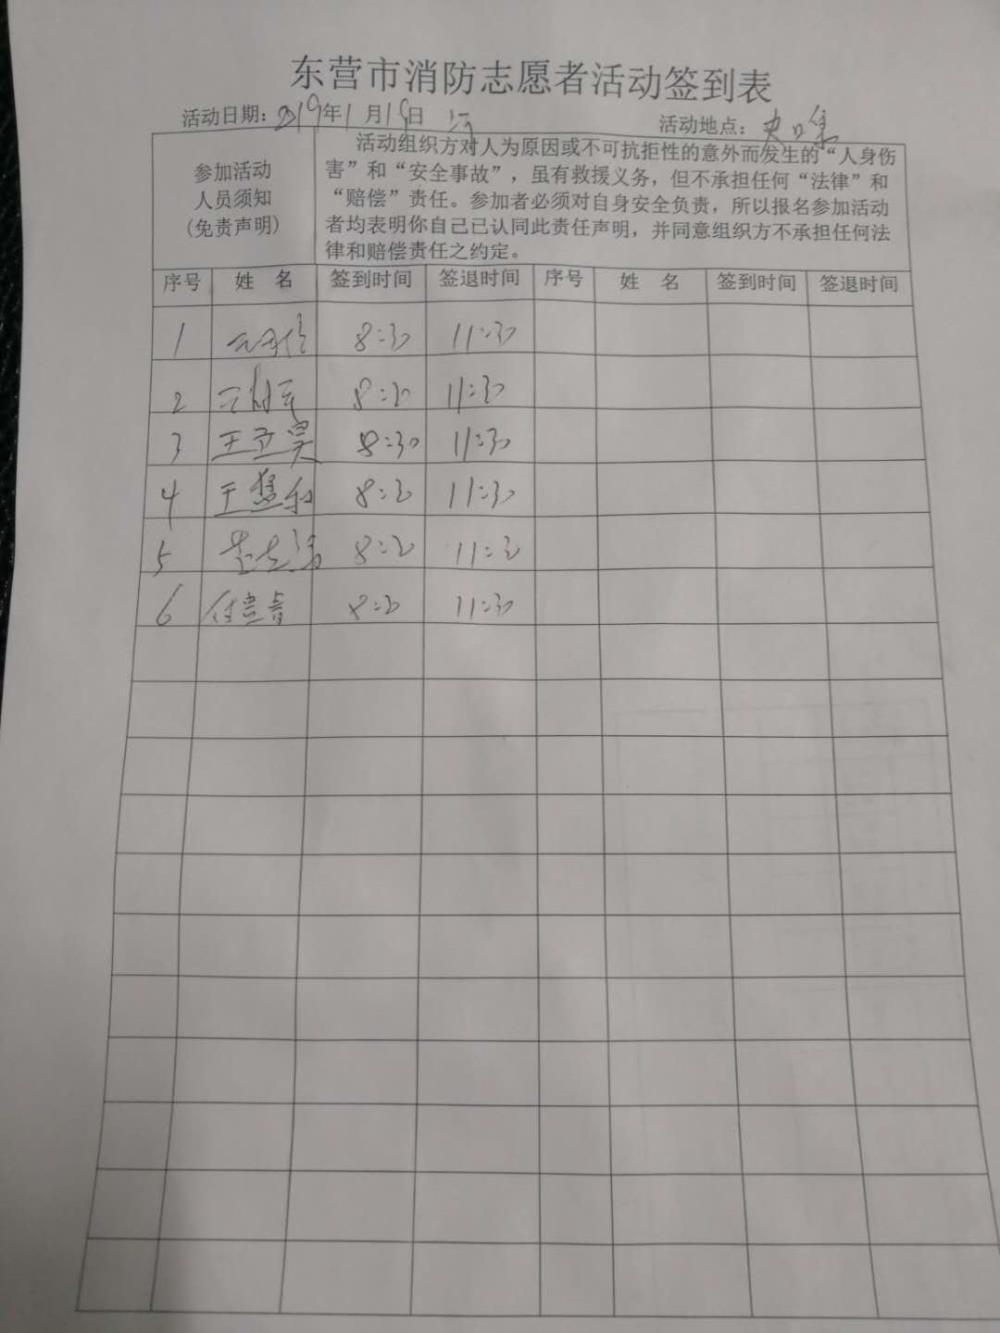 东营市消防志愿者活动签到表
活动日期：2019年1月19日 活动地点：史口集
参加活动
人员须知
(免责声明)
活动组织方对人为原因或不可抗拒性的意外而发生的“人身伤
害”和“安全事故”，虽有救援义务，但不承担任何“法律”和
“赔偿”责任。参加者必须对自身安全负责，所以报名参加活动
者均表明你自己已认同此责任声明，并同意组织方不承担任何法
律和赔偿责任之约定。
序号 姓 名 签到时间 签退时间 序号 姓 名 签到时间 签退时间
1 8:30 11:30
2 8:30 11:30
3 王立昊 8:30 11:30
4 王 8:30 11:30
5 8:30 11:30
6 8:30 11:30